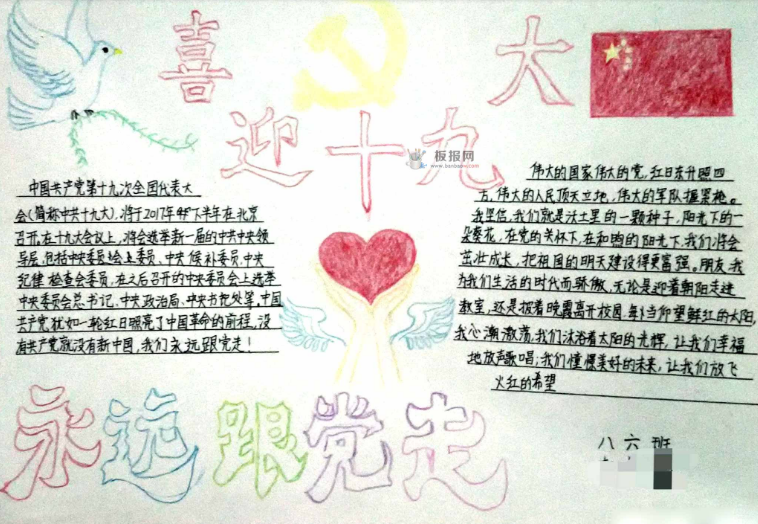 喜迎十九大
板报网
中国共产党第十九次全国代表大
会(简称中共十九大),将于2017年下半年在北京
召开,在十九大会议上,将会选举新一届的中共中央领
导层,包括中央委员会委员,中央候补委员,中央
纪律检查会委员,在之后召开的中央委员会上选举
中央委员会总书记,中央政治局,中央书记处等,中国
共产党犹如一轮红日照亮了中国革命的前程,没
有共产党就没有新中国,我们永远跟党走!
伟大的国家伟大的党,红日东升照四
方,伟大的人民顶天立地,伟大的军队握紧枪。
我坚信,我们就是沃土里的一颗种子,阳光下的一
朵葵花,在党的关怀下,在和煦的阳光下,我们将会
茁壮成长,把祖国的明天建设得更富强。朋友,我
为我们生活的时代而骄傲,无论是迎着朝阳走进
教室,还是披着晚霞离开校园,每当仰望鲜红的太阳,
我心潮激荡,我们沐浴着太阳的光辉,让我们幸福
地放声歌唱;我们憧憬美好的未来,让我们放飞
火红的希望
永远跟党走
八六班